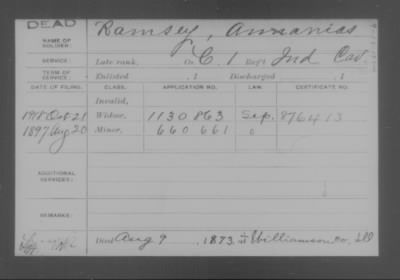 DEAD
NAME OF SOLDIER: Ramsey, Annanias
SERVICE: Late rank, Co. C. 1 Reg't Ind Cav
TERM OF SERVICE: Enlisted , 1 Discharged , 1
DATE OF FILING. CLASS. APPLICATION NO. LAW. CERTIFICATE NO.
Invalid,
1918 Oct 21 Widow, 1130863 876413
1897 Aug 20 Minor, 660661
ADDITIONAL SERVICES:
REMARKS:
Died Aug 9, 1873, at Williamson Co. Ill